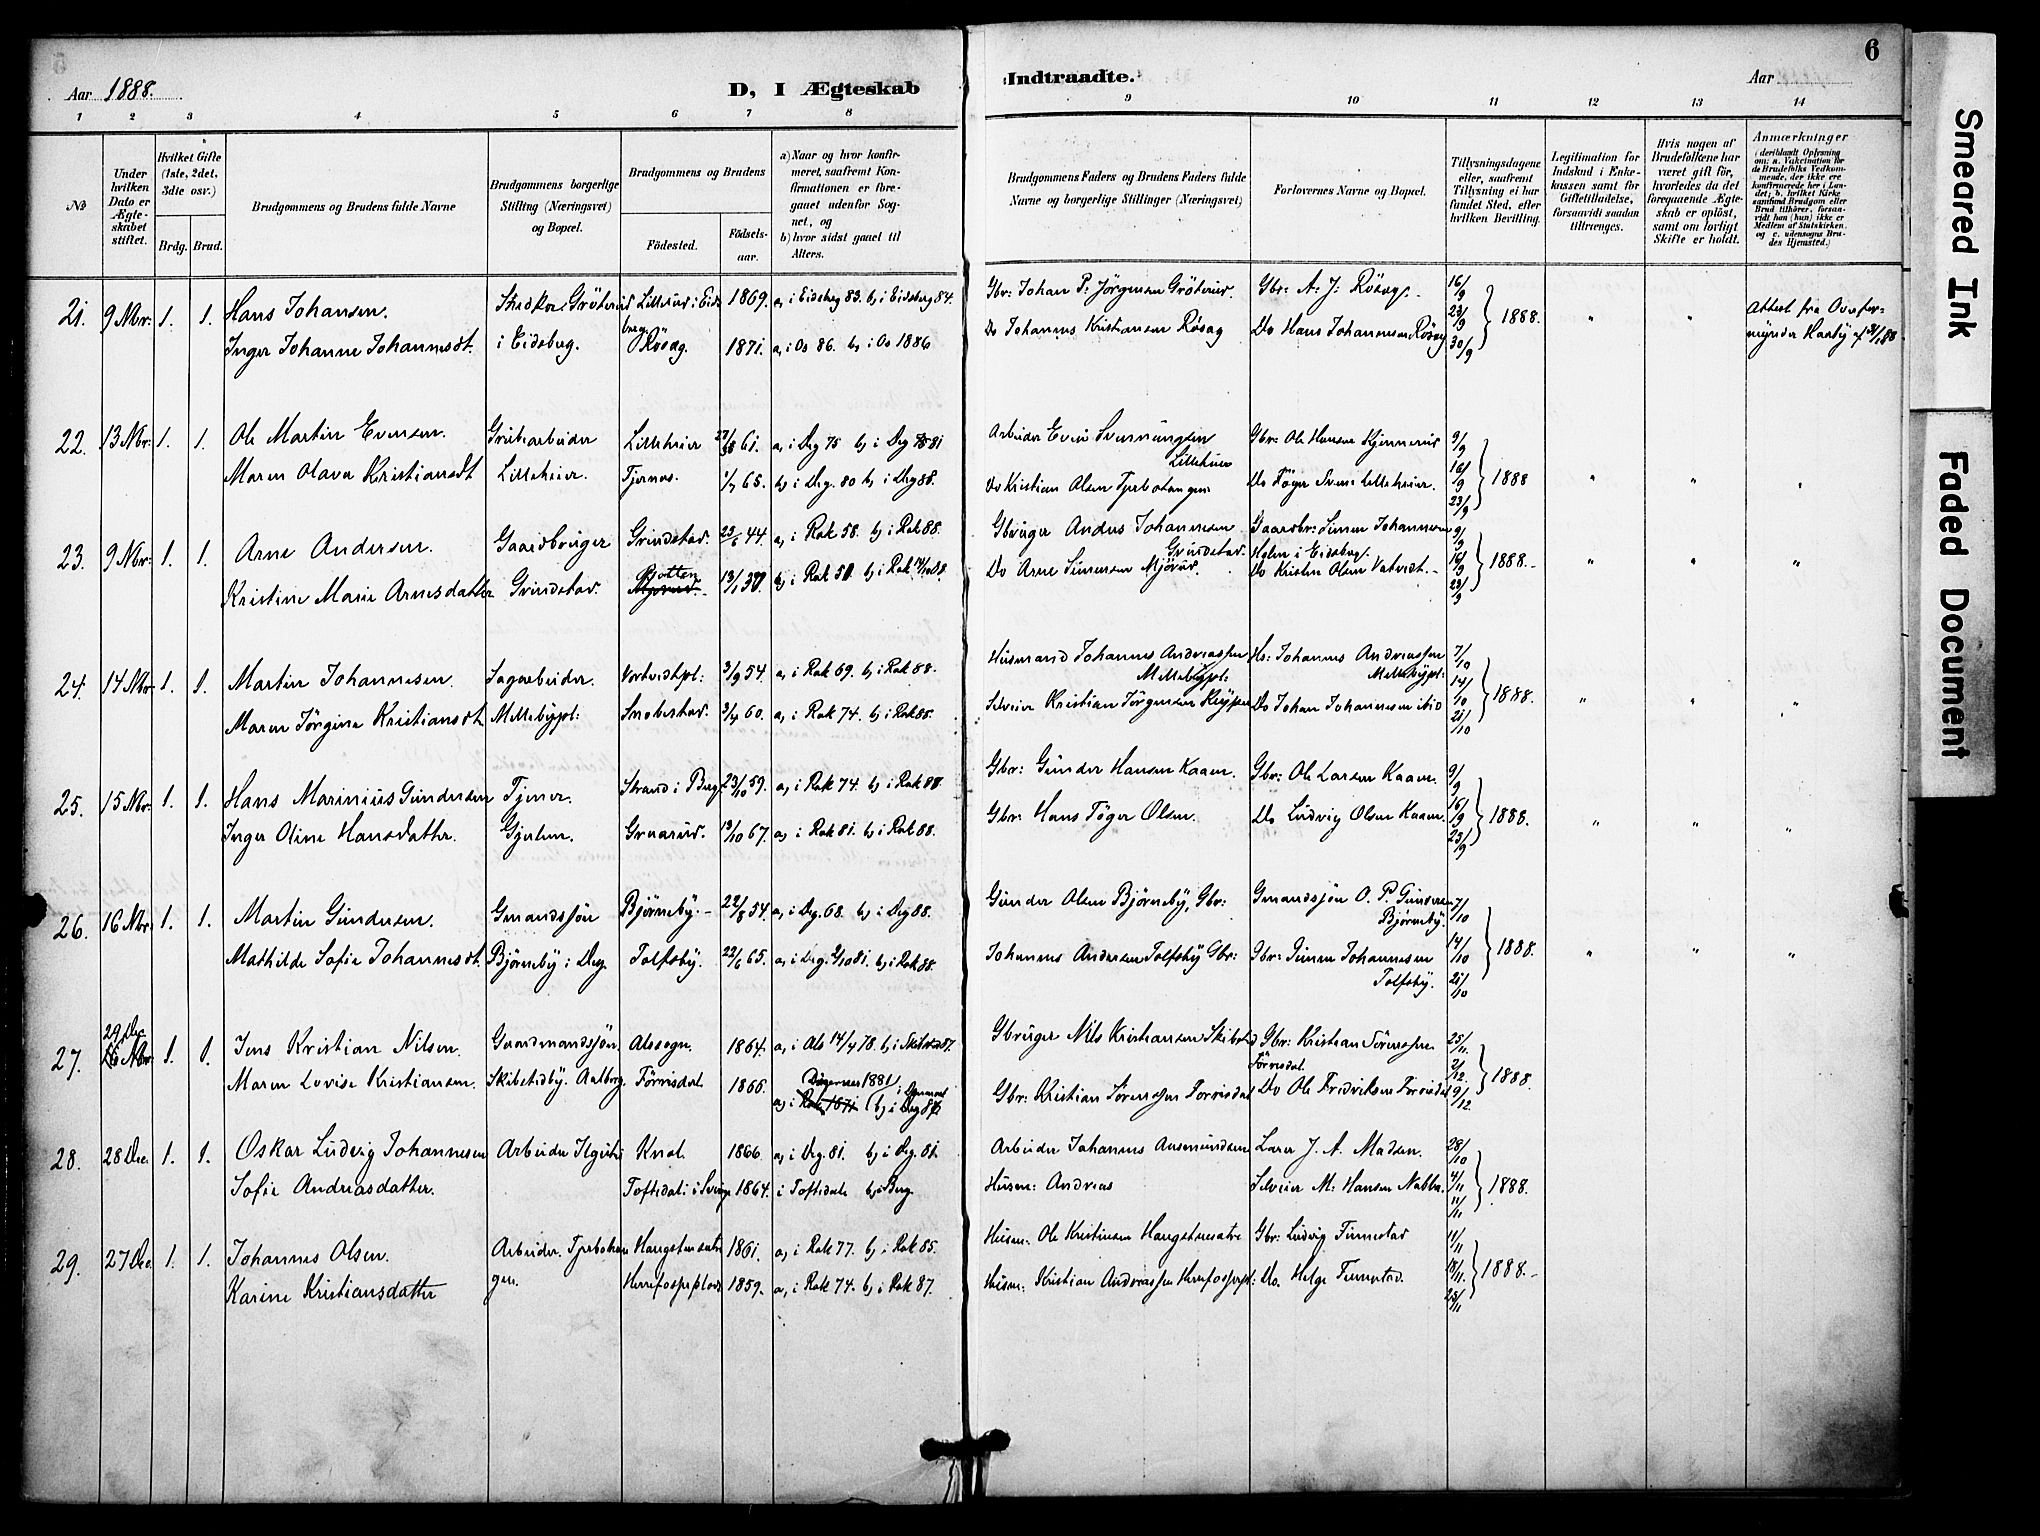 6
Aar 1888.
D, I Ægteskab
Indtraadte.
Aar
1 2 3 4 5 6 7 8 9 10 11 12 13 14
No
Under hvilken Dato er Ægteskabet stiftet.
Hvilket Gifte (1ste, 2det, 3die osv.)
Brdg. Brud.
Brudgommens og Brudens fulde Navne
Brudgommens borgerlige Stilling (Næringsvei) og Bopæl.
Brudgommens og Brudens
Födested.
Födsels-aar.
a) Naar og hvor konfirmeret, saafremt Konfirmationen er foregaaet udenfor Sognet, og
b) hvor sidst gaaet til Alters.
Brudgommens Faders og Brudens Faders fulde Navne og borgerlige Stillinger (Næringsvei)
Forlovernes Navne og Bopæl.
Tillysningsdagene eller, saafremt Tillysning ei har fundet Sted, efter hvilken Bevilling.
Legitimation for Indskud i Enkekassen samt for Giftetilladelse, forsaavidt saadan tiltrænges.
Hvis nogen af Brudefolkene har været gift før, hvorledes da det foregaaende Ægteskab er opløst, samt om lovligt Skifte er holdt.
Anmærkninger
21. 9 Nbr: 1. 1. Hans Johansen. Lilleröd i Eids 1869. a, i Eidsberg 83. b, i Eidsberg 84. Gbr: Johan P: Jörgensen Gröterud. Gbr: A. J: Rösæg. 16/9 Attest fra Overfor-
Inger Johanne Johannesdt. i Eidsberg. berg Rösæg. 1871. a, i Os 86. b, i Os 1886 Do Johannes Kristiansen Rösæg Do Hans Johannesen Rösæg 23/9 30/9 1888. mynder Haaby
22. 13 Nbr: 1. 1. Ole Martin Evensen. Grubearbeider Lilleheier 61. a, i Deg 75 b, i Deg 81 Arbeider Even Svenningsen Lilleheier Gbr: Ole Hansen Kjennerud 9/9
Maren Olava Kristiansdt Lilleheier. Tjernes. 1/7 65. b, i Deg. 80 b, i Deg 88. Do Kristian Olsen Tjerbotangen Do Föger Svens: Lilleheier. 16/9 23/9 1888
23. 9 Nbr: 1. 1. Arne Andersen. Gaardbruger Grindstad. 23/6 44. a, i Rak 58. b, i Rak 88. Gbruger Anders Johannesen Grindstad. Gaardbr: Simen Johannesen Holm i Eidsberg. 9/9
Kristine Marie Arnesdatter Grindstad. 13/1 37. b, i Rak b, i Rak Do Arne Simensen Mjörud Do Kristen Olsen Vatvedt. 16/9 23/9 1888.
24. 14 Nbr 1. 1. Martin Johannesen. Sagarbeider. Vortvedtpl: 3/9 54. a, i Rak 69. b, i Rak 88. Husmand Johannes Andreassen Mellebypl: Hs: Johannes Andreassen Mellebypl: 7/10
Maren Jörgine Kristiansdt. Mellebypl: Snobestad. 3/4 60. a, i Rak 74. b, i Rak 88. Selveier Kristian Jörgensen Do Johan Johannesen ibid 14/10 21/10 1888.
25. 15 Nbr: 1. 1. Hans Marinius Gundersen Tjener. Strand i Berg. 23/10 59. a, i Rak 74. b, i Rak 88 Gbr: Gunder Hansen Kaaen. Gbr: Ole Larsen Kaaen. 9/9
Inger Oline Hansdatter. Gjerlem. Gruarud. 13/10 67. a, i Rak 81. b, i Rak 88. Gbr: Hans Föger Olsen. Do Ludvig Olsen Kaaen. 16/9 23/9 1888.
26. 16 Nbr: 1. 1. Martin Gundersen. Gmandssön Björneby. 22/8 54. a, i Deg. 68. b, i Deg 88. Gunder Olsen Björneby, Gbr: Gmandssön O. P. Gundersen Björneby. 7/10
Mathilde Sofie Johannesdt. Björneby i Deg. Tolfsby. 22/6 65. a, i Deg. 81. b, i Rak 88. Johannes Andersen Tolfsby Gbr: Gbr: Simen Johannesen Tolfsby. 14/10 21/10 1888.
27. 1. 1. Jens Kristian Nilsen. Gaardmandssön Alssogn. 1864. a, i Als 14/4 78. b, i Skibsted 87. Gbruger Nils Kristiansen Skibsted Gbr: Kristian Sörensen Törrisdal 25/11
Maren Lovise Kristiansen. Skibstedby. Aalborg. Törrisdal 1866. 1881 b, i Deg Gbr: Kristian Sörensen Törrisdal Do Ole Fredriksen Törrisdal 2/12. 9/12. 1888.
28. 28 Dec. 1. 1. Oskar Ludvig Johannesen Arbeider Knol. 1866. a, i Deg. 81. b, i Deg. 81. Arbeider Johannes Aasmundsen Lærer J. A. Madsen. 28/10
Sofie Andreasdatter. Toftedal i Sverige 1864. i Toftedale b, i Berg. Husm: Andreas Selveier M: Hansen Nabben. 4/11 11/11 1888.
29. 27 Dec 1. 1. Johannes Olsen. Arbeider. Tjerbotan Haugstensætre 1861. a, i Rak 77. b, i Rak 85. Husm: Ole Kristensen Haugstensætre Gbr: Ludvig Tinnestad 11/11
Karine Kristiansdatter gen. 1859. a, i Rak 74. b, i Rak 87. Husm: Kristian Andreassen Do. Helge Tinnestad. 18/11. 25/11 1888.
Smeared Ink
Faded Document